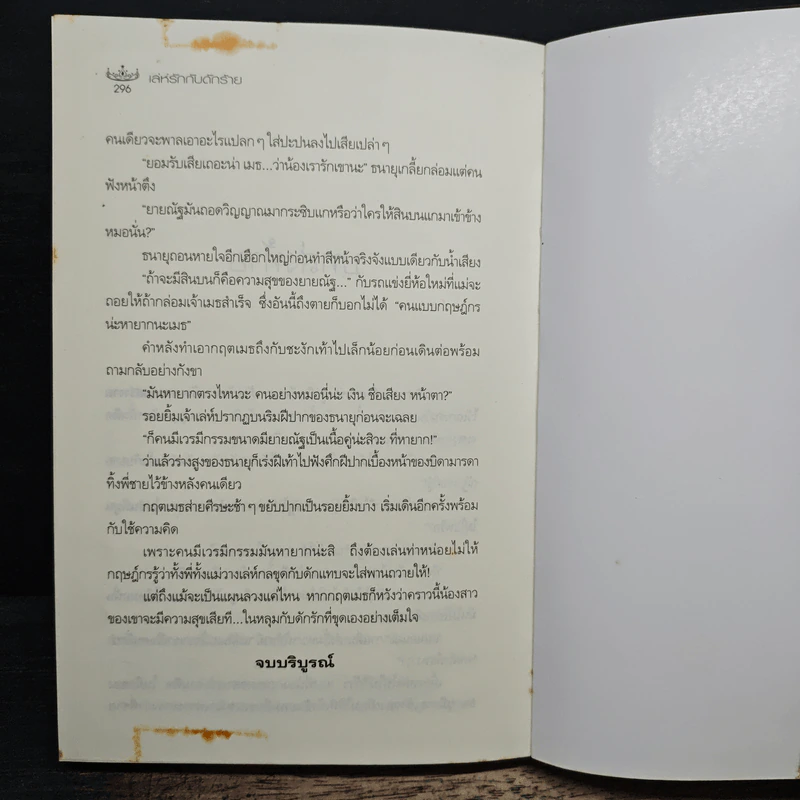 296
เล่ห์รักกับดักร้าย
คนเดียวจะพาลเอาอะไรแปลก ๆ ใส่ปะปนลงไปเสียเปล่า ๆ
“ยอมรับเสียเถอะน่า เมธ...ว่าน้องเรารักเขานะ” ธนายุเกลี้ยกล่อมแต่คน
ฟังหน้าตึง
“ยายณัฐมันถอดวิญญาณมากระซิบแกหรือว่าใครให้สินบนแกมาเข้าข้าง
หมอนั่น?”
ธนายุถอนหายใจอีกเฮือกใหญ่ก่อนทำสีหน้าจริงจังแบบเดียวกับน้ำเสียง
“ถ้าจะมีสินบนก็คือความสุขของยายณัฐ...” กับรถแข่งยี่ห้อใหม่ที่แม่จะ
ถอยให้ถ้ากล่อมเจ้าเมธสำเร็จ ซึ่งอันนี้ถึงตายก็บอกไม่ได้ “คนแบบกฤษฎ์กร
น่ะหายากนะเมธ”
คำหลังทำเอากฤตเมธถึงกับชะงักเท้าไปเล็กน้อยก่อนเดินต่อพร้อม
ถามกลับอย่างกังขา
“มันหายากตรงไหนวะ คนอย่างหมอนี่น่ะ เงิน ชื่อเสียง หน้าตา?”
รอยยิ้มเจ้าเล่ห์ปรากฏบนริมฝีปากของธนายุก่อนจะเฉลย
“ก็คนมีเวรมีกรรมขนาดมียายณัฐเป็นเนื้อคู่น่ะสิวะ ที่หายาก!”
ว่าแล้วร่างสูงของธนายุก็เร่งฝีเท้าไปฟังศึกฝีปากเบื้องหน้าของบิดามารดา
ทิ้งพี่ชายไว้ข้างหลังคนเดียว
กฤตเมธส่ายศีรษะช้า ๆ ขยับปากเป็นรอยยิ้มบาง เริ่มเดินอีกครั้งพร้อม
กับใช้ความคิด
เพราะคนมีเวรมีกรรมมันหายากน่ะสิ ถึงต้องเล่นท่าหน่อยไม่ให้
กฤษฎ์กรรู้ว่าทั้งพี่ทั้งแม่วางเล่ห์กลขุดกับดักแทบจะใส่พานถวายให้!
แต่ถึงแม้จะเป็นแผนลวงแค่ไหน หากกฤตเมธก็หวังว่าคราวนี้น้องสาว
ของเขาจะมีความสุขเสียที...ในหลุมกับดักรักที่ขุดเองอย่างเต็มใจ
จบบริบูรณ์